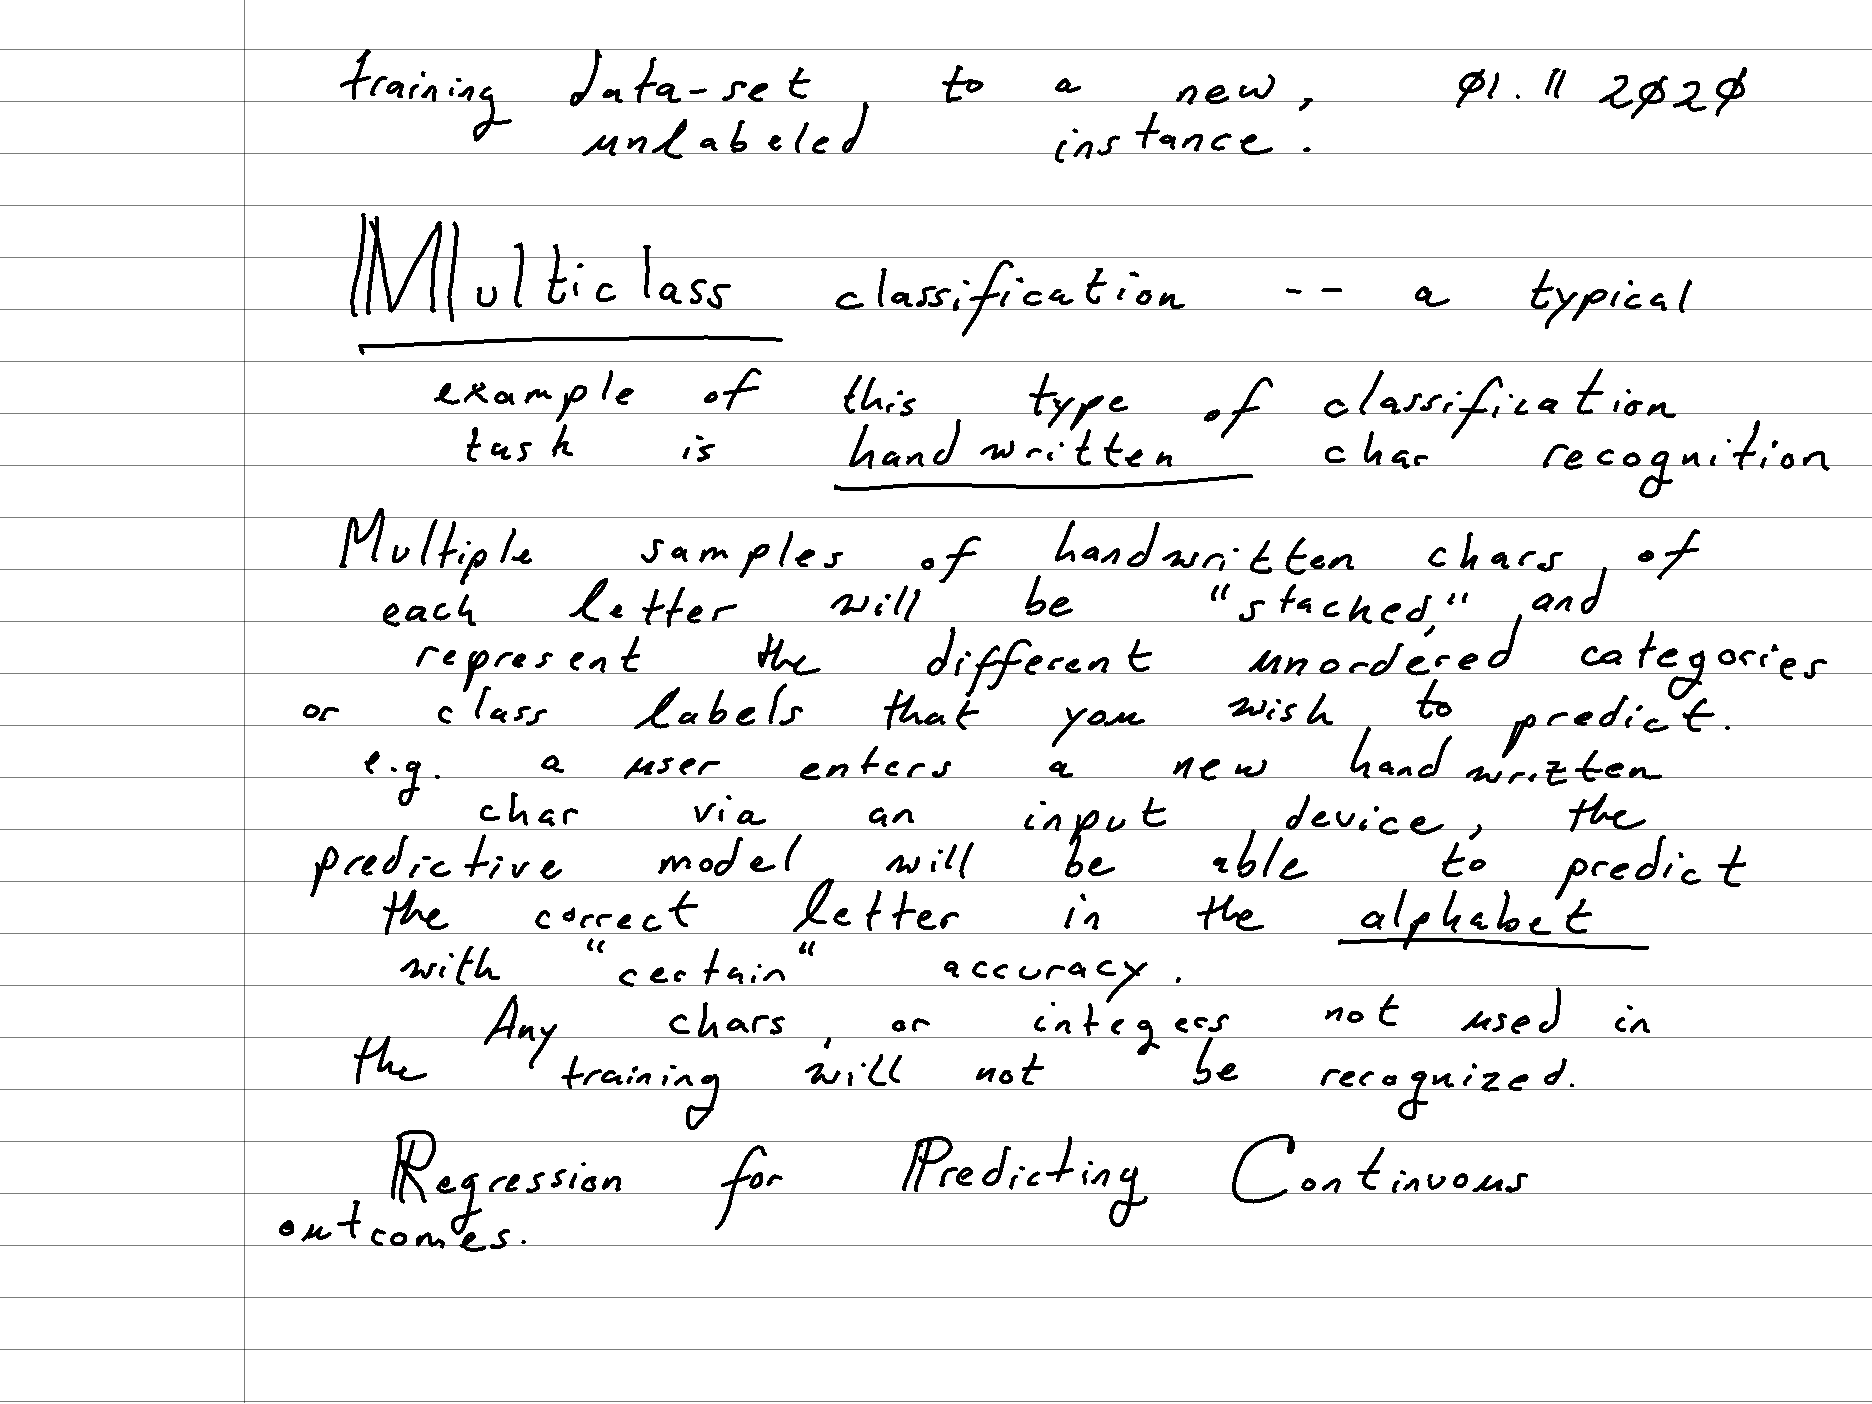 training data-set, to a new, 01.11 2020
unlabeled instance.
Multiclass classification -- a typical
example of this type of classification
task is handwritten char recognition
Multiple samples of handwritten chars of
each letter will be "stacked," and
represent the different unordered categories
or class labels that you wish to predict.
e.g. a user enters a new handwritten
char via an input device, the
predictive model will be able to predict
the correct letter in the alphabet
with "certain" accuracy.
Any chars, or integers not used in
the training will not be recognized.
Regression for Predicting Continuous
outcomes.